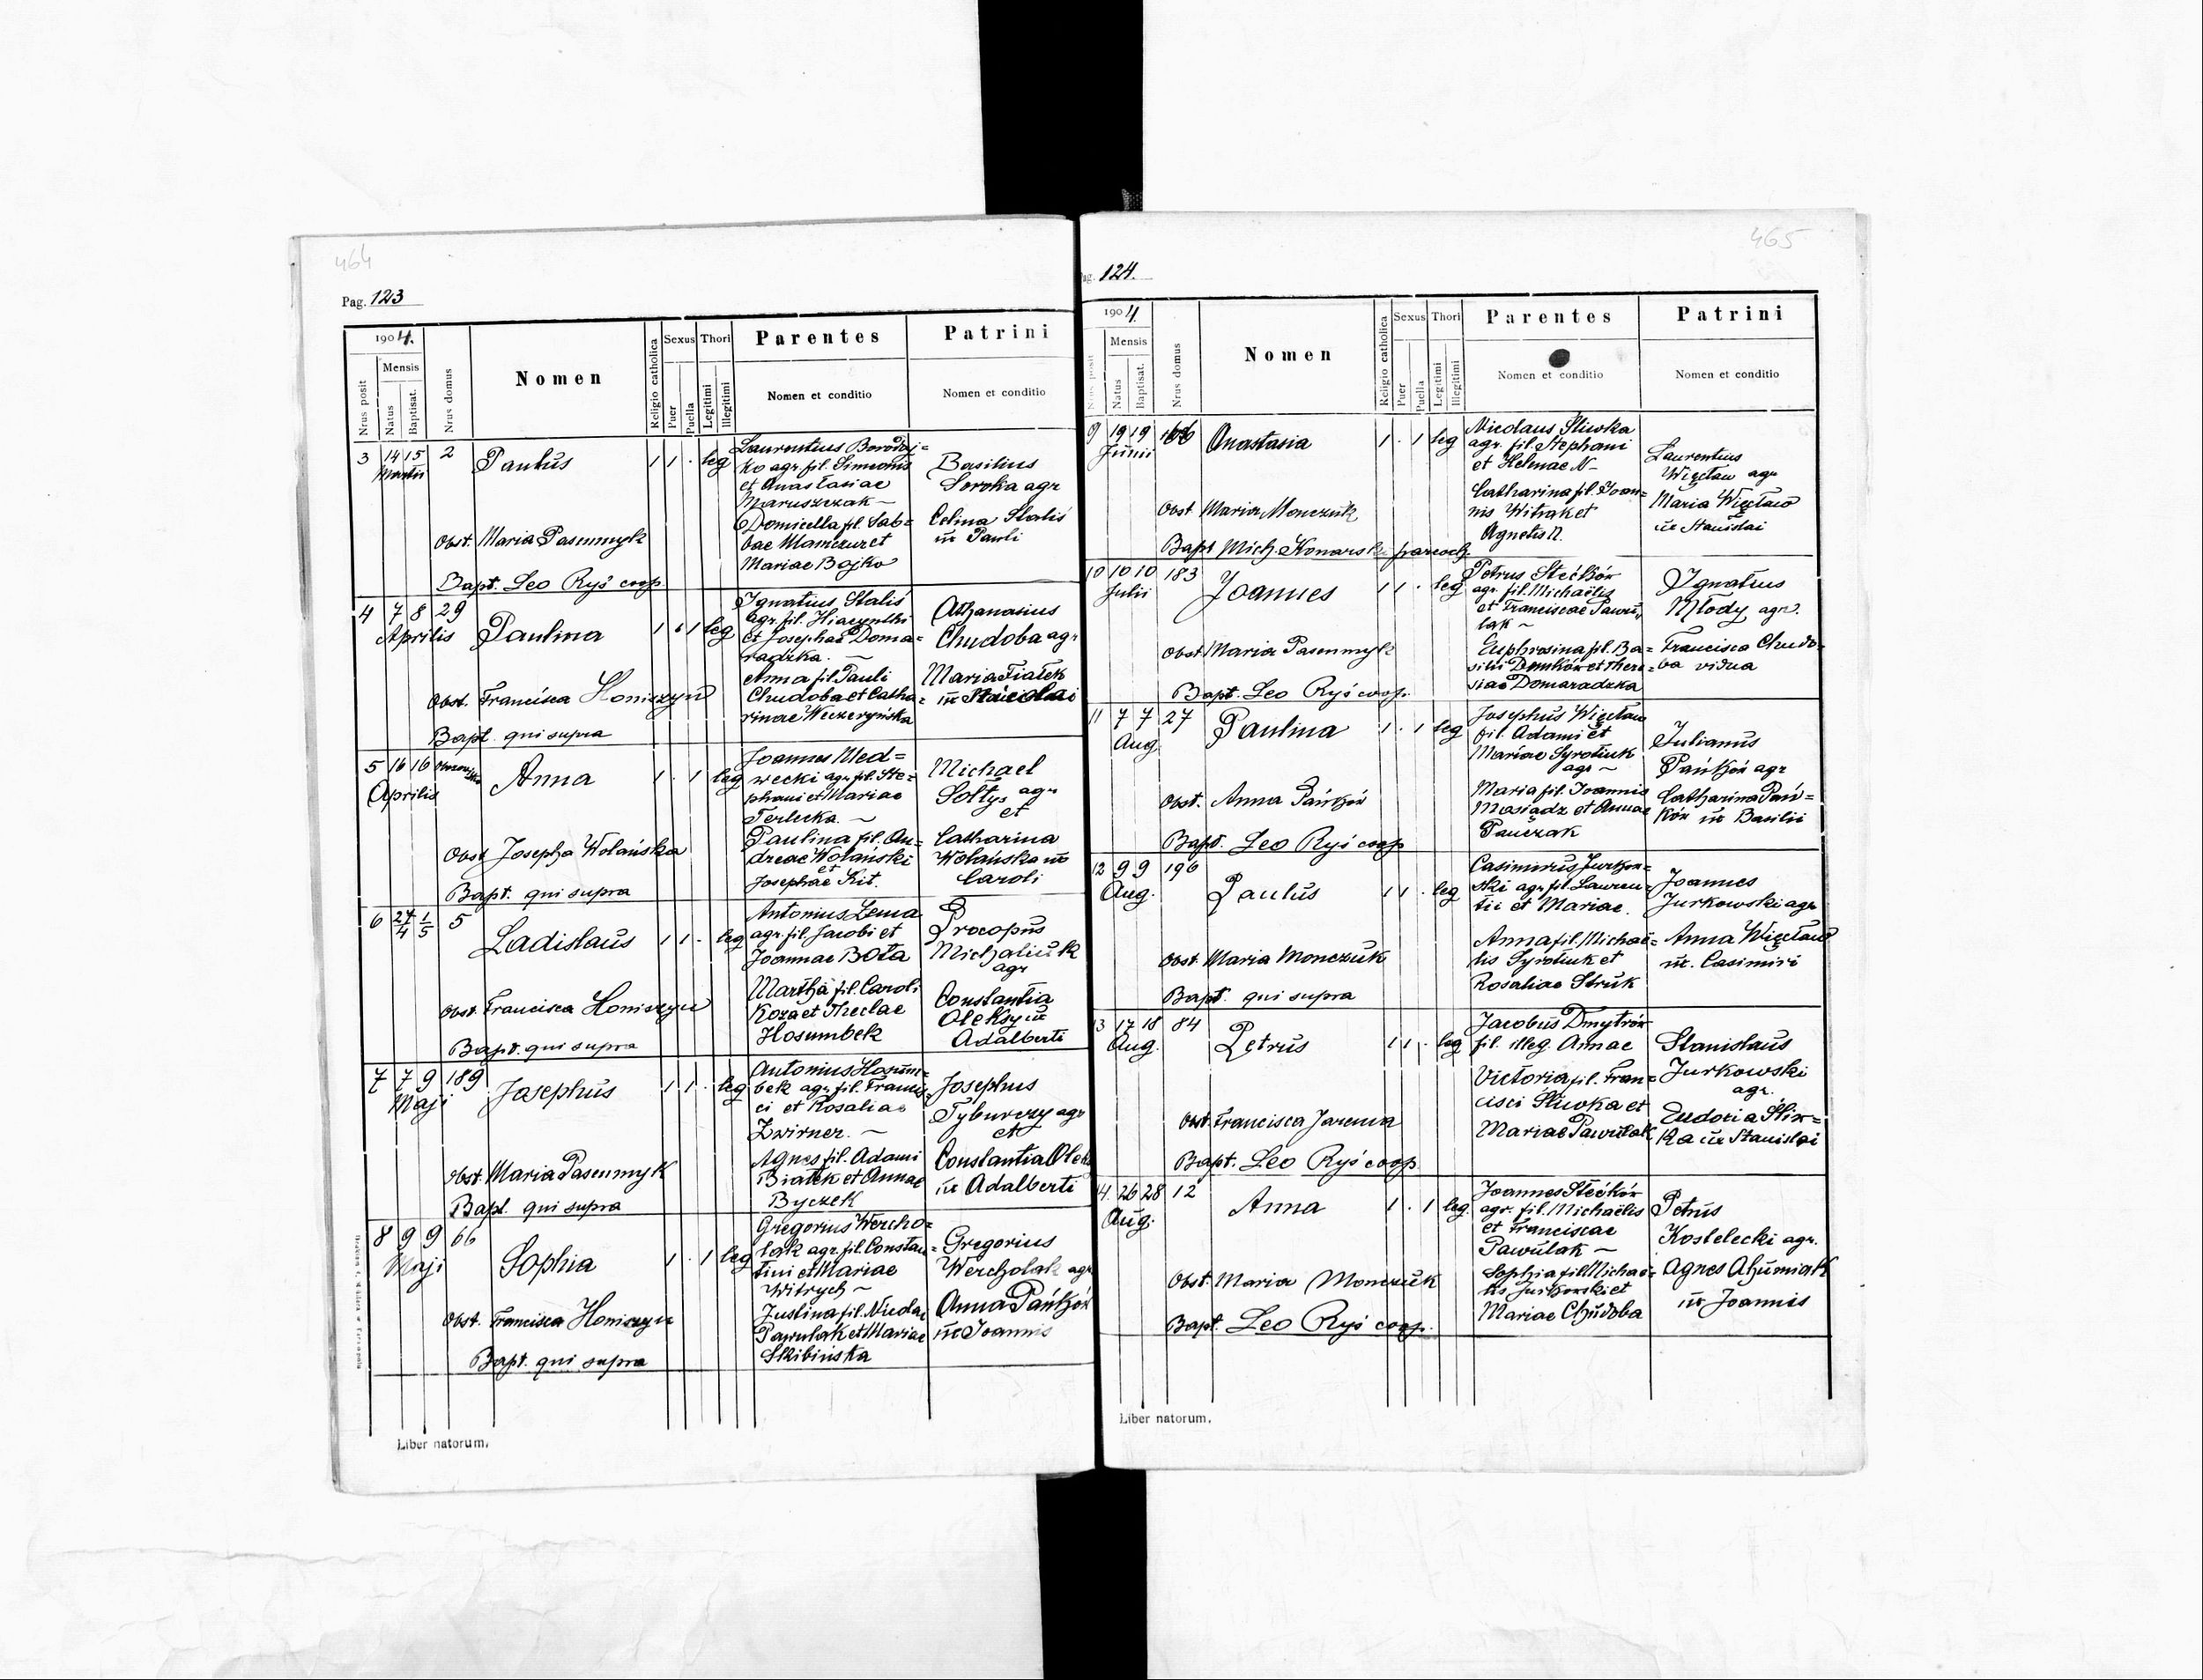 464
Pag. 123
1904.
Nrus posit
Mensis
Natus
Baptisat.
Nrus domus
Nomen
Religio catholica
Sexus
Puer
Puella
Thori
Legitimi
Illegitimi
Parentes
Nomen et conditio
Patrini
Nomen et conditio
3 14 15 2 Paulus 1 1 . leg
Martii
Laurentius Borodij=
ko agr. fil. Simeonis
et Anastasiae
Maruszczak ~
Domicella fil. Sab=
bae Mamczur et
Mariae Bojko
Basilius
Soroka agr
Celina Stalis
ux Pauli
Obst. Maria Pasemnyk
Bapt. Leo Ryś coop
4 7 8 29 Paulina 1 . 1 leg
Aprilis
Ignatius Stalis
agr. fil. Hiacynthi
et Josephae Doma=
radzka. ~
Anna fil. Pauli
Chudoba et Catha=
rinae Weczeryńska
Athanasius
Chudoba agr
Maria Fiałek
ux Stanislai
Obst. Francisca Honiszyn
Bapt. qui supra
5 16 16 Anna 1 . 1 leg
Aprilis
Joannes Med=
wecki agr. fil. Ste=
phani et Mariae
Terlecka. ~
Paulina fil. An=
dreae Wolański
et
Josephae Kit.
Michael
Sołtys agr
et
Catharina
Wolańska ux
Caroli
Obst. Josepha Wolańska
Bapt. qui supra
6 27/4 1/5 5 Ladislaus 1 1 . leg
Antonius Zema
agr. fil. Jacobi et
Joannae Bota
Martha fil. Caroli
Koza et Theclae
Hosumbek
Procopus
Michaluk
agr
Constantia
Oleksy ux
Adalberti
Obst. Francisca Honiszyn
Bapt. qui supra
7 7 9 189 Josephus 1 1 . leg
Maji
Antonius Hosum=
bek agr. fil. Francis=
ci et Rosaliae
Zwirner. ~
Agnes fil. Adami
Białek et Annae
Byczek
Josephus
Tyburczy agr
et
Constantia
ux Adalberti
Obst. Maria Pasemnyk
Bapt. qui supra
8 9 9 66 Sophia 1 . 1 leg
Maji
Gregorius Wercho=
lak agr. fil. Constan=
tini et Mariae
Witrych ~
Justina fil. Nicolai
Pawulak et Mariae
Skibińska
Gregorius
Wercholak agr
Anna Pańków
ux Joannis
Obst. Francisca Honiszyn
Bapt. qui supra
Liber natorum.
465
Pag. 124.
1904
Nrus posit
Mensis
Natus
Baptisat.
Nrus domus
Nomen
Religio catholica
Sexus
Puer
Puella
Thori
Legitimi
Illegitimi
Parentes
Nomen et conditio
Patrini
Nomen et conditio
9 19 19 Anastasia 1 . 1 leg
Junii
Nicolaus Śliwka
agr. fil. Stephani
et Helenae N ~
Catharina fil. Joan=
nis Witrak et
Agnetis N.
Laurentius
Więcław agr
Maria Więcław
ux Stanislai
Obst Maria Monczuk
Bapt Mich. Konarski paroch.
10 10 10 183 Joannes 1 1 . leg
Julii
Petrus Stećków
agr. fil. Michaëlis
et Franciscae Pawu=
lak ~
Euphrosina fil. Ba=
silii Demków et There=
siae Domaradzka
Ignatius
Młody agr.
Francisca Chudo=
ba vidua
Obst. Maria Pasemnyk
Bapt. Leo Ryś coop.
11 7 7 27 Paulina 1 . 1 leg
Aug.
Josephus Więcław
fil. Adami et
Mariae Syrotiuk
agr ~
Maria fil. Joannis
Mosiądz et Annae
Panczak
Julianus
Pańków agr
Catharina Pań=
ków ux Basilii
Obst. Anna Pańków
Bapt. Leo Ryś coop
12 9 9 196 Paulus 1 1 . leg
Aug.
Casimirus Jurkow=
ski agr. fil. Lauren=
tii et Mariae.
Anna fil. Michaë=
lis Syrotiuk et
Rosaliae Struk
Joannes
Jurkowski agr
Anna Więcław
ux. Casimiri
Obst. Maria Monczuk
Bapt. qui supra
13 17 18 84 Petrus 1 1 . leg
Aug.
Jacobus Dmytrów
fil. illeg. Annae
Victoria fil. Fran=
cisci Śliwka et
Mariae Pawulak
Stanislaus
Jurkowski
agr.
Eudocia Śliw=
ka ux Stanislai
Obst. Francisca Jarema
Bapt. Leo Ryś coop
14. 26 28 12 Anna 1 . 1 leg.
Aug.
Joannes Stećków
agr. fil. Michaëlis
et Franciscae
Pawulak ~
Sophia fil. Michaë=
lis Jurkowski et
Mariae Chudoba
Petrus
Kostelecki agr.
Agnes
ux Joannis
Obst. Maria Monczuk
Bapt. Leo Ryś coop.
Liber natorum.